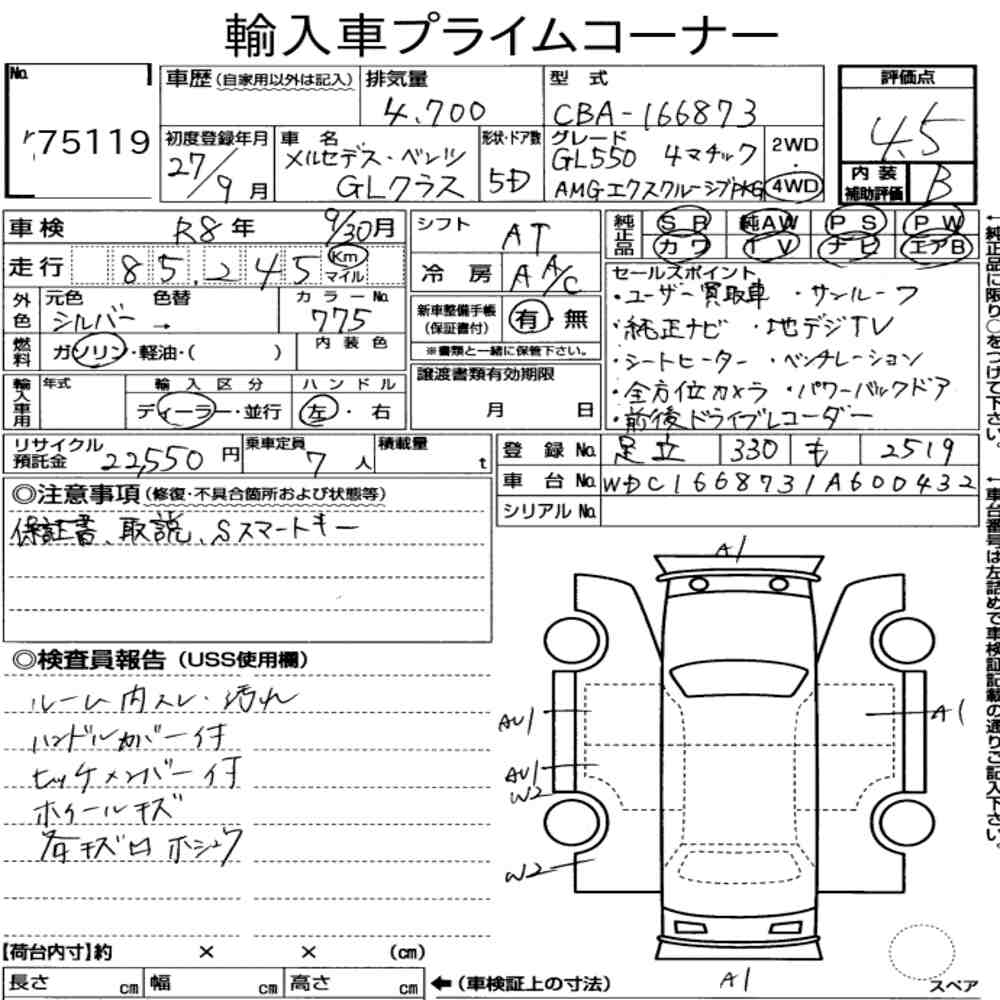 輸入車プライムコーナー
No.
75119
車歴(自家用以外は記入)
排気量
4,700
型式
CBA-166873
評価点
4.5
初度登録年月
27/9月
車名
メルセデス・ベンツ
GLクラス
形状・ドア数
5D
グレード
GL550 4マチック
AMGエクスクルーシブPKG
2WD
・
4WD
内装
補助評価
B
車検
R8年 9/30月
シフト
AT
純正品
SR 純AW PS PW
カワ TV ナビ エアB
走行
85,245
Km
マイル
冷房
AA/C
セールスポイント
・ユーザー買取車 ・サンルーフ
・純正ナビ ・地デジTV
・シートヒーター ・ベンチレーション
・全方位カメラ ・パワーバックドア
・前後ドライブレコーダー
外色
元色 色替
シルバー →
カラーNo.
775
新車整備手帳
(保証書付)
有・無
※書類と一緒に保管下さい。
燃料
ガソリン・軽油・( )
内装色
輸入車用
年式
輸入区分
ディーラー・並行
ハンドル
左・右
譲渡書類有効期限
月 日
リサイクル
預託金
22,550円
乗車定員
7人
積載量
t
登録No.
足立 330 も 2519
車台No.
WDC1668731A600432
シリアルNo.
◎注意事項(修復・不具合箇所および状態等)
保証書、取説、Sスマートキー
◎検査員報告(USS使用欄)
ルーム内スレ・汚れ
ハンドルカバー付
ヒッチメンバー付
ホイールキズ
各キズロホシュウ
A1
AU1
A1
AU1
W2
W2
A1
スペア
【荷台内寸】約 × × (cm)
長さ cm 幅 cm 高さ cm
←(車検証上の寸法)
←純正品に限り○をつけて下さい。
←車台番号は左詰めで車検証記載の通りご記入下さい。